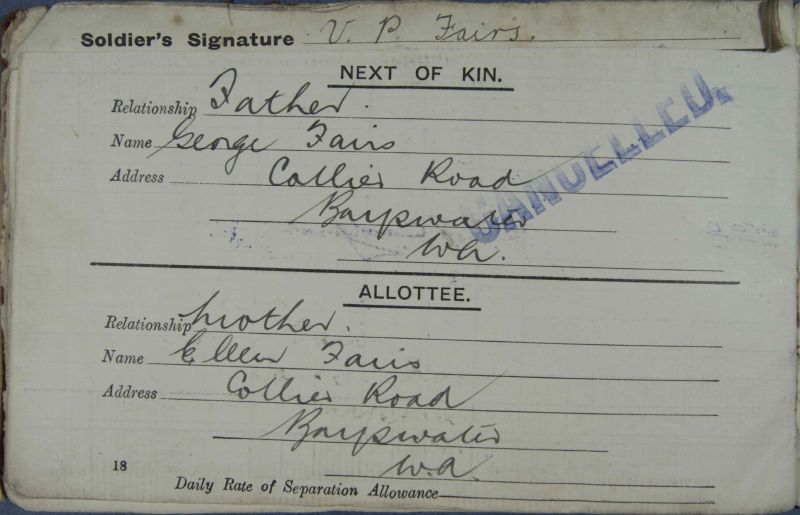 Soldier's Signature V. P. Fairs.
NEXT OF KIN.
Relationship Father.
Name George Fairs
Address Collier Road
Bayswater
W.A.
CANCELLED.
ALLOTTEE.
Relationship Mother.
Name Ellen Fairs
Address Collier Road
Bayswater
W.A.
18
Daily Rate of Separation Allowance